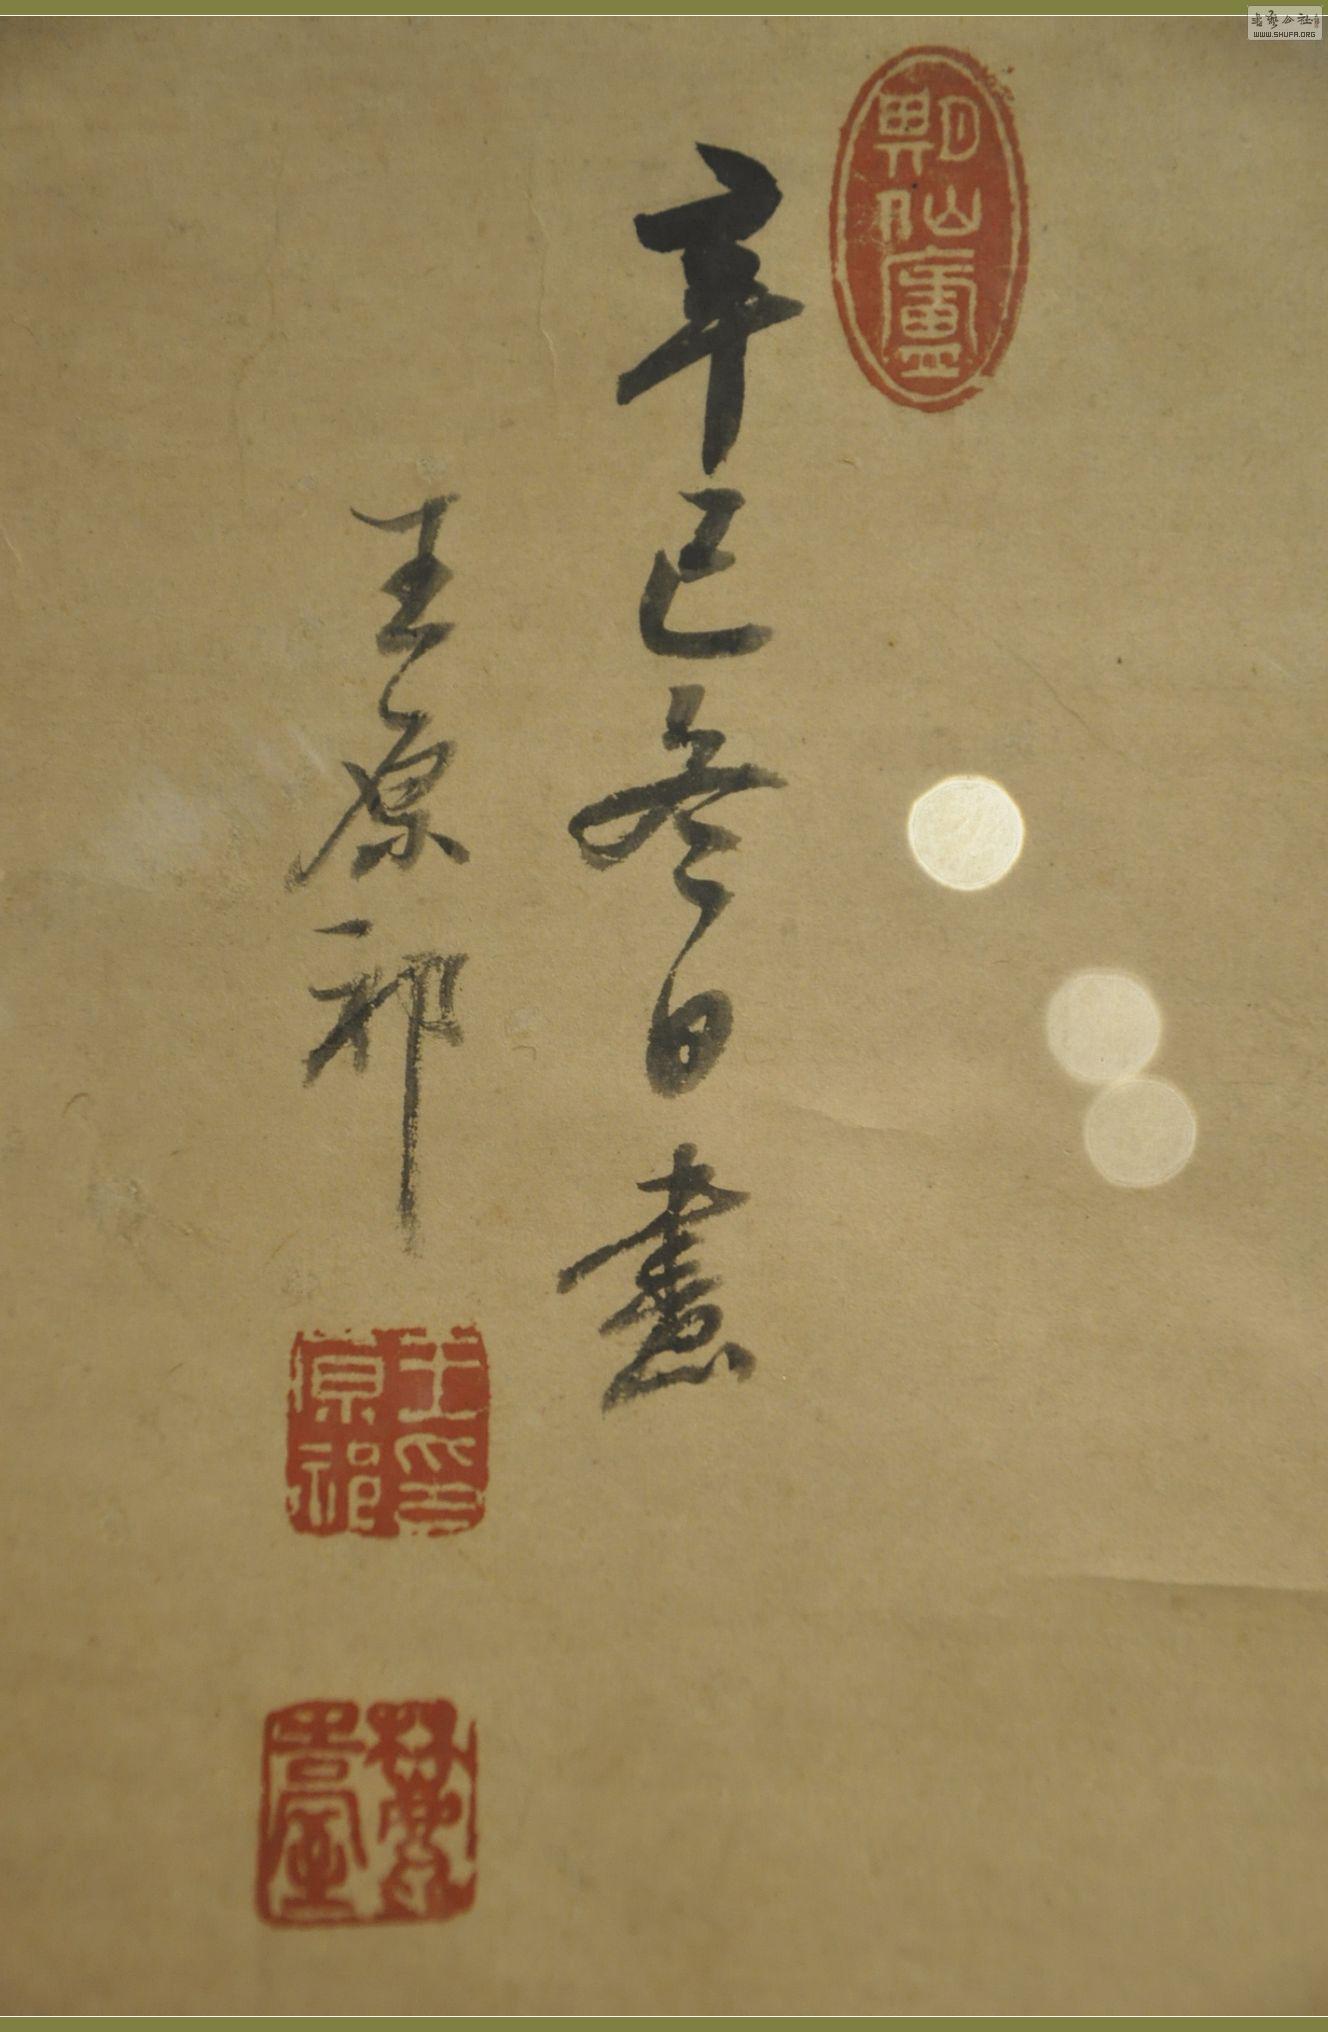 書藝公社
WWW.SHUFA.ORG
辛巳冬日畫
王原祁
王印
原祁
麓臺